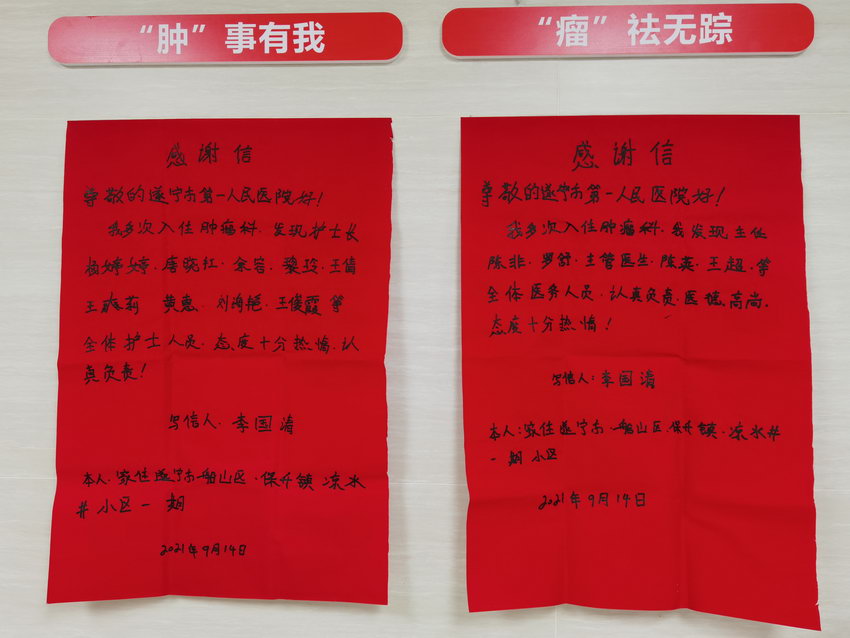 “肿”事有我
感谢信
尊敬的遂宁市第一人民医院好！
我多次入住肿瘤科．发现护士长
杨婷婷．唐晓红．余容．黎玲．王倩
王莉 黄惠．刘海艳．王俊霞等
全体护士人员．态度十分热情．认
真负责！
写信人．李国清
本人．家住遂宁市船山区．保升镇．凉水
井小区一期
2021年9月14日
“瘤”祛无踪
感谢信
尊敬的遂宁市第一人民医院好！
我多次入住肿瘤科．我发现主任
陈非．罗舒．主管医生．陈英．王超．等
全体医务人员．认真负责．医德高尚．
态度十分热情！
写信人：李国清
本人：家住遂宁市船山区．保升镇．凉水井
一期小区
2021年9月14日